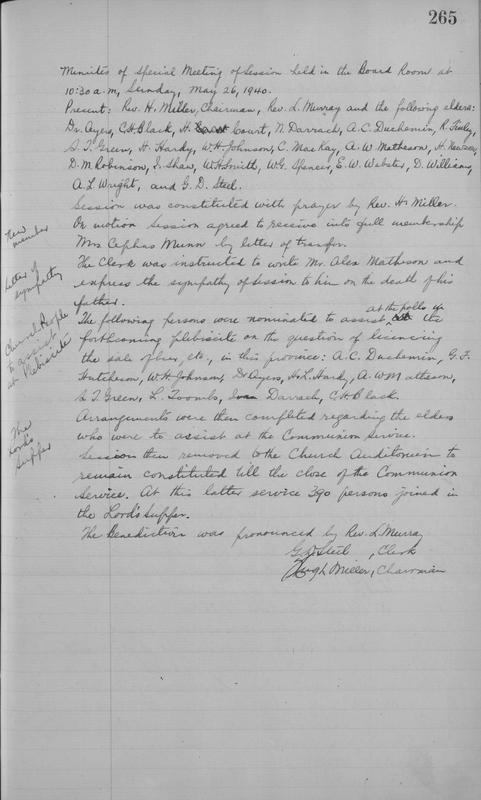 265
Minutes of Special Meeting of Session held in the Board Room at
10:30 a.m, Sunday, May 26, 1940.
Present: Rev. H. Miller, Chairman, Rev. L. Murray and the following elders:
Dr. Ayers, C.H. Black, H. Court, N. Darrach, A.C. Duchemin, R.
S.T. Green, H. Hardy, W.H. Johnson, C. MacKay, A.W. Matheson, H.
D.M. Robinson, I. Shaw, W.H. Smith, W.G. Spencer, E.W. Webster, D. Williams,
A.L. Wright, and G.D. Steel.
Session was constituted with prayer by Rev. H. Miller.
New
member
On motion Session agreed to receive into full membership
Mrs Cephas Munn by letter of transfer.
Letter of
sympathy
The Clerk was instructed to write Mr. Alex Matheson and
express the sympathy of Session to him on the death of his
father.
Church People
to assist
at Plebiscite
The following persons were nominated to assist at the polls in the
forthcoming plebiscite on the question of licencing
the sale of beer, etc., in this province: A.C. Duchemin, G.F.
Hutcheson, W.H. Johnson, Dr Ayers, H.L. Hardy, A.W. Matheson,
S.T. Green, L. Toombs, Ivan Darrach, C.H. Black.
The
Lord's
Supper
Arrangements were then completed regarding the elders
who were to assist at the Communion Service.
Session then removed to the Church Auditorium to
remain constituted till the close of the Communion
Service. At this latter service 390 persons joined in
the Lord's Supper.
The Benediction was pronounced by Rev. L. Murray
G.D. Steel, Clerk
Hugh Miller, Chairman